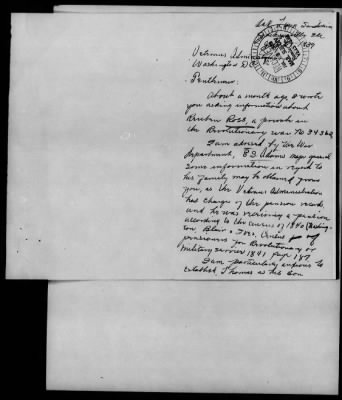 Veterans Admin
Washington D.C.
Gentlemen.
About a month ago, I wrote
you asking information about
Reuben Ross, a private in
the Revolutionary war
I am advised by the War
Department, E S Adams Major General
some information in regard to
his family may be obtained from
you, as the Veterans Administration
has charge of the pension records
and he was receiving a pension
according to the census of 1840
Blair & Ives, Census of
pensioners for Revolutionary or
Military service 1841 page 187
I am particularly anxious to
establish Thomas as his son